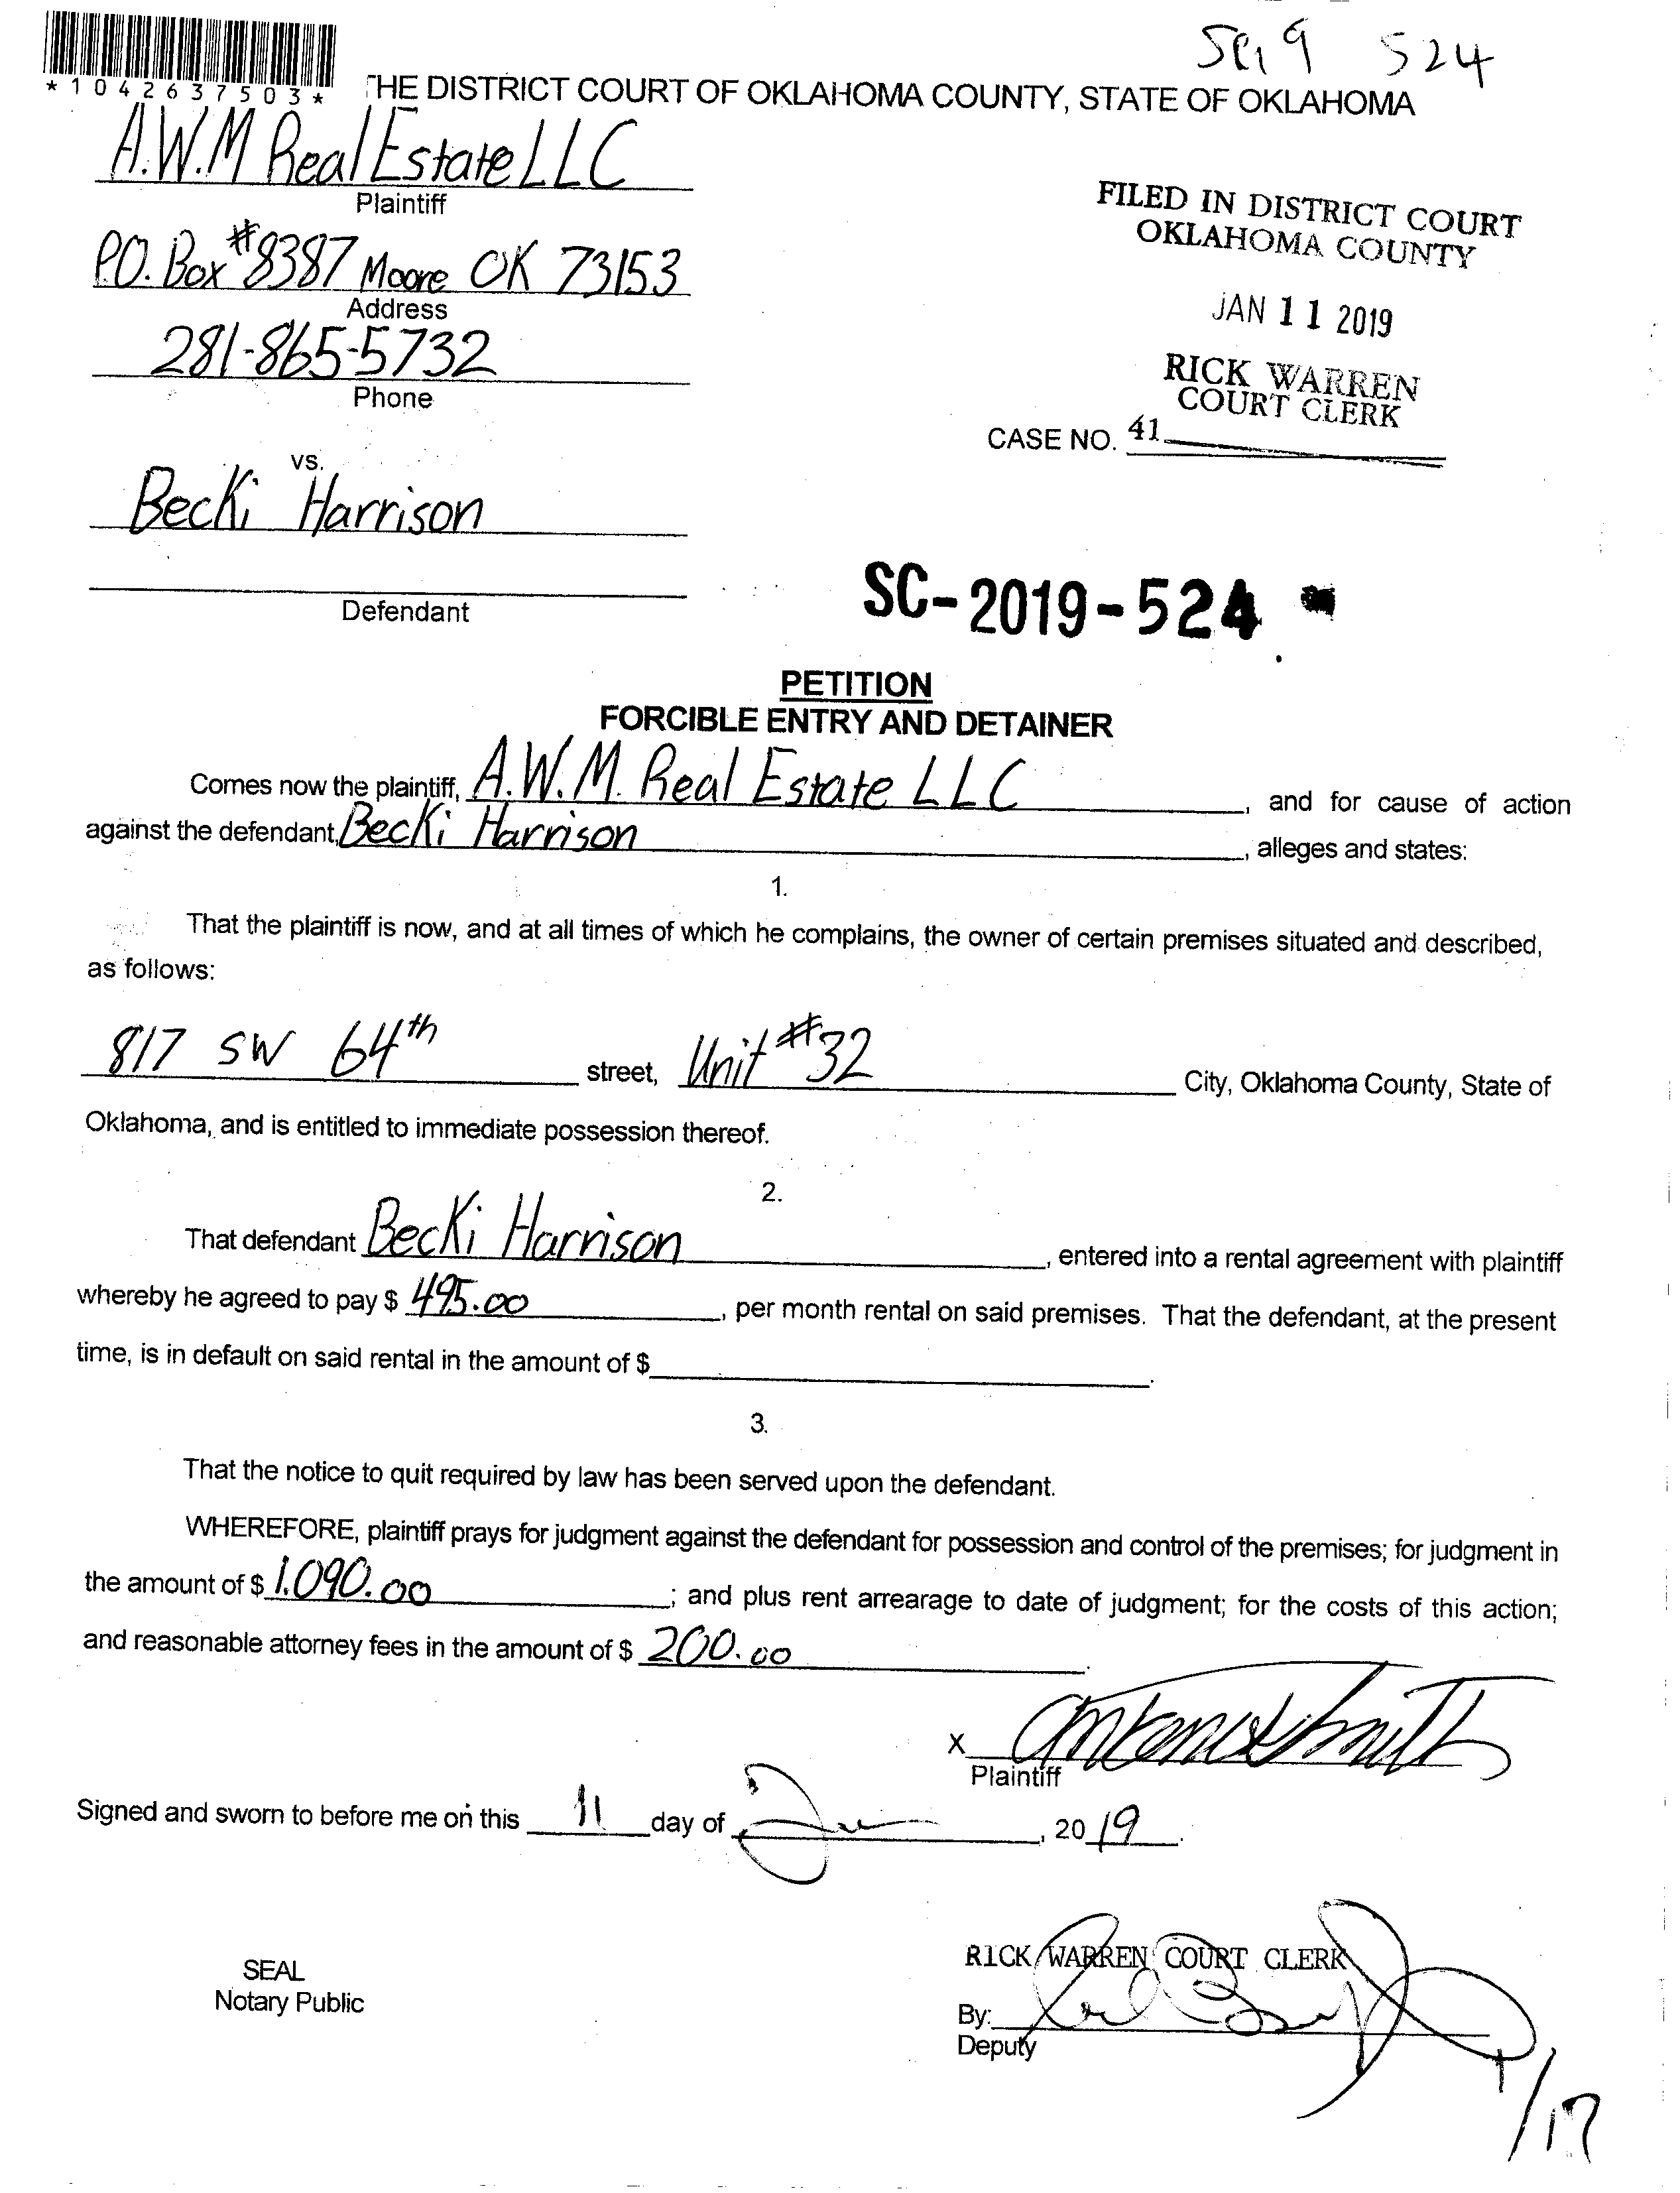 SC19 524
*1042637503*
THE DISTRICT COURT OF OKLAHOMA COUNTY, STATE OF OKLAHOMA
A.W.M Real Estate LLC
Plaintiff
FILED IN DISTRICT COURT
OKLAHOMA COUNTY
P.O. Box #8387 Moore OK 73153
Address
JAN 11 2019
281-865-5732
Phone
RICK WARREN
COURT CLERK
CASE NO. 41
vs.
Becki Harrison
Defendant
SC-2019-524
PETITION
FORCIBLE ENTRY AND DETAINER
Comes now the plaintiff, A.W.M. Real Estate LLC, and for cause of action
against the defendant, Becki Harrison, alleges and states:
1.
That the plaintiff is now, and at all times of which he complains, the owner of certain premises situated and described,
as follows:
817 SW 64th street, Unit #32 City, Oklahoma County, State of
Oklahoma, and is entitled to immediate possession thereof.
2.
That defendant Becki Harrison, entered into a rental agreement with plaintiff
whereby he agreed to pay $ 495.00, per month rental on said premises. That the defendant, at the present
time, is in default on said rental in the amount of $.
3.
That the notice to quit required by law has been served upon the defendant.
WHEREFORE, plaintiff prays for judgment against the defendant for possession and control of the premises; for judgment in
the amount of $ 1,090.00; and plus rent arrearage to date of judgment; for the costs of this action;
and reasonable attorney fees in the amount of $ 200.00.
X
Plaintiff
Signed and sworn to before me on this 11 day of Jan, 2019.
SEAL
Notary Public
RICK WARREN COURT CLERK
By:
Deputy
1/17